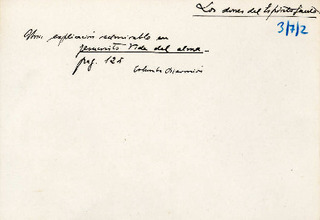 Los dones del Espíritu Santo
3/7/2
Una explicación admirable en
Jesucristo Vida del alma -
pag. 128
Columba Marmión